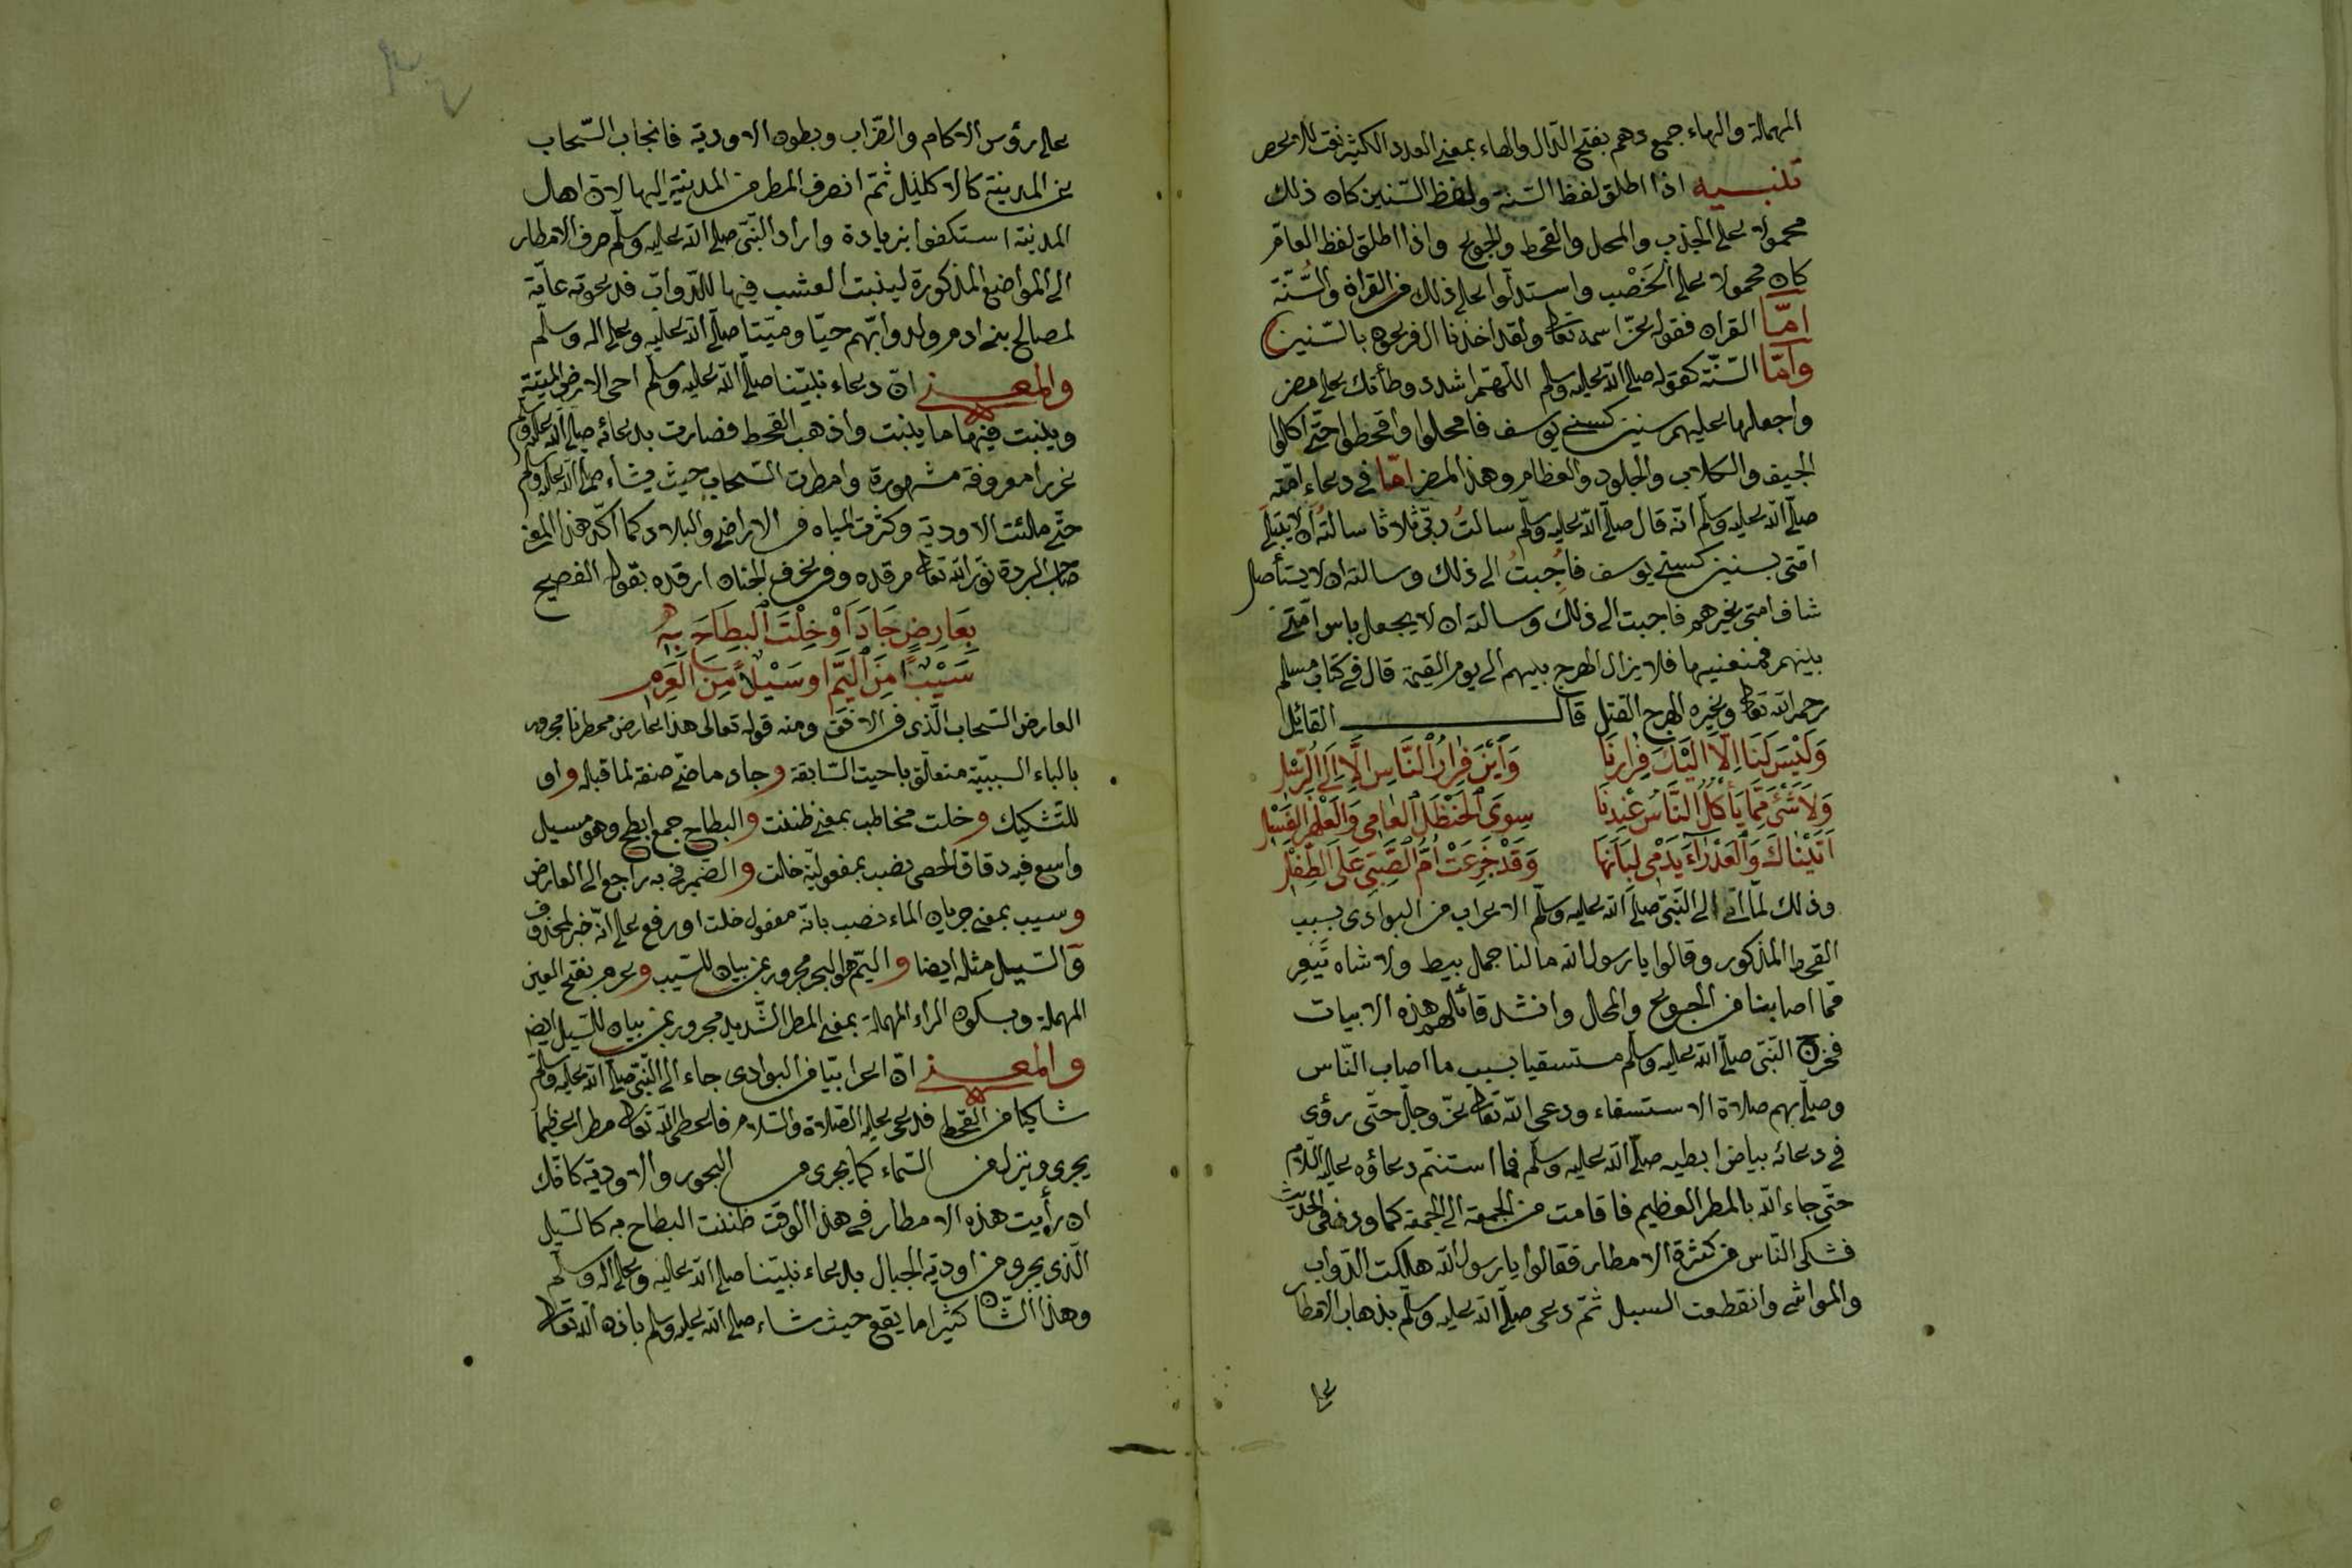 المهملة والهاء جمع دهم بفتح الدال والهاء بمعنى العدد الكثير نعت للامحص
تنبيه اذا اطلق لفظ السنة ولفظ السنين كان ذلك
محمولا على الجذب والمحل والقحط والجوع واذا اطلق لفظ العام
كان محمولا على الخَصْب واستدلّوا على ذلك من القرآن والسُّنّة
امّا القران فقوله عزّ اسمه تعالى ولقد اخذنا ال فرعون بالسّنين
وامّا السّنّة كقوله صلّى الله عليه وسلم اللّهمّ اشدد وطأتك على مضر
واجعلها عليهم سنين كسني يوسف فامحلوا واقحطوا حتّى اكلوا
الجيف والكلاب والجلود والعظام وهذا لمضر امّا في دعاء امّته
صلّى الله عليه وسلّم انّه قال صلّى الله عليه وسلّم سالتُ ربّي ثلاثا سالتُه ان لا يبتلى
امّتى بسنين كسني يوسف فاُجِبتُ الى ذلك وسالته ان لا يستأصل
شاف امتى غيرهم فاجبت الى ذلك وسالته ان لا يجعل باس امّتي
بينهم فمنعنيها فلا يزال الهرج بينهم الى يوم القيمة قال في كتاب مسلم
رحمه الله تعالى وغيره الهرج القتل قال القائل
وَلَيْسَ لَنَا اِلَّا اِلَيْكَ فِرارنَا وَاَيْنَ فِرارُ النَّاسِ اِلَّا اِلَى الرُّسْلِ
وَلَا شَئَ مِمَّا يَأكُلُ النَّاسُ عِنْدنَا سِوَى الحَنْظَلِ العَامِى وَالعَلْهَزِ الفَسْلِ
اَتَيْنَاكَ وَالعَذْرَآءُ يَدْمى لِبَانَهَا وَقَدْ جَزِعَتْ اُمُّ الصَّبِىّ عَلَى الطِّفْلِ
وذلك لمّا اتى الى النّبىّ صلّى الله عليه وسلّم الاعراب من البوادى بسبب
القحط المذكور وقالوا يا رسول الله ما لنا جمل يبيط ولا شاه تَيْعِر
ممّا اصابنا من الجوع والمحال وانشد قائلهم هذه الابيات
فخرج النّبى صلّى الله عليه وسلّم مستسقيا بسبب ما اصاب النّاس
وصلّى بهم صلاة الاستسقاء ودعى الله تعالى عزّ وجلّ حتّى رؤى
في دعائه بياض ابطيه صلّى الله عليه وسلّم فما استتمّ دعاؤه عليه السّلام
حتّى جاء الله بالمطر العظيم فاقامت من الجمعة الى الجمعة كما ورد في الحديث
فشكى النّاس من كثرة الامطار فقالوا يا رسول الله هلكت الدّواب
والمواشى وانقطعت السبل ثمّ دعى صلّى الله عليه وسلّم بذهاب الامطار
على
على رؤس الاكام والظّراب وبطون الاودية فانجاب السّحاب
عن المدينة كالاكليل ثمّ انصرف المطر من المدينة اليها لان اهل
المدينة استكفوا بزيادة واراد النّبىّ صلّى الله عليه وسلّم صرف الامطار
الى المواضع المذكورة لينبت العشب فيها للدّوابّ فدعوته عامّة
لمصالح بنى ادم ولدوابّهم حيّا وميّتا صلّى الله عليه وعلى اله وسلّم
والمعنى انّ دعاء نبيّنا صلّى الله عليه وسلّم احى الارض الميّتة
وينبت فيها ما ينبت واذهب القحط فصارت بدعائه صلّى الله عليه وسلم
غررا معروفة مشهورة وامطرت السّحاب حيث يشاء صلّى الله عليه وسلّم
حتّى ملئت الاودية وكثرت المياه في الاراضى والبلاد كما اكّد هذا المعنى
صاحب البردة نوّر الله تعالى مرقده وفى غرف الجنان ارقده بقوله الفصيح
بِعَارِضٍ جَادَ اَوْ خِلْتَ البِطَاحَ بِهٖ
سَيْبًا مِنَ اليَمِّ او سَيْلاً مِنَ العَرِمِ
العارض السّحاب الّذى فى الافق ومنه قوله تعالى هذا عارض ممطرنا مجرور
بالباء السببيّة متعلّق باحيت السّابقة وجاد ماضى صفة لما قبله واو
للتّشكيك وخلت مخاطب بمعنى ظننت والبطاح جمع ابطح وهو مسيل
واسع فيه دقاق الحصى نصب بمفعوليّة خلت والضّمير فى به راجع الى العارض
وسيب بمعنى جريان الماء نصب بانّه مفعول خلت او رفع على انّه خبر لمحذوف
والسّيل مثله ايضا واليمّ هو البحر مجرور بمن بيان للسّيب وعرم بفتح العين
المهملة وبسكون الراء المهملة بمعنى المطر الشّديد مجرور بمن بيان للسّيل ايضا
والمعنى انّ اعرابيّا من البوادى جاء الى النّبىّ صلّى الله عليه وسلّم
شاكيا من القحط فدعى عليه الصّلاة والسّلام فاعطى الله تعالى مطرا عظيما
يجرى وينزل من السّماء كما يجرى من البحور والاودية كانّك
ان رأيت هذه الامطار في هذا الوقت ظننت البطاح به كالسّيل
الّذى يجرى من اودية الجبال بدعاء نبيّنا صلّى الله عليه وعلى اله وسلّم
وهذا الشّان كثيرا ما يقع حيث شاء صلّى الله عليه وسلم باذن الله تعالى